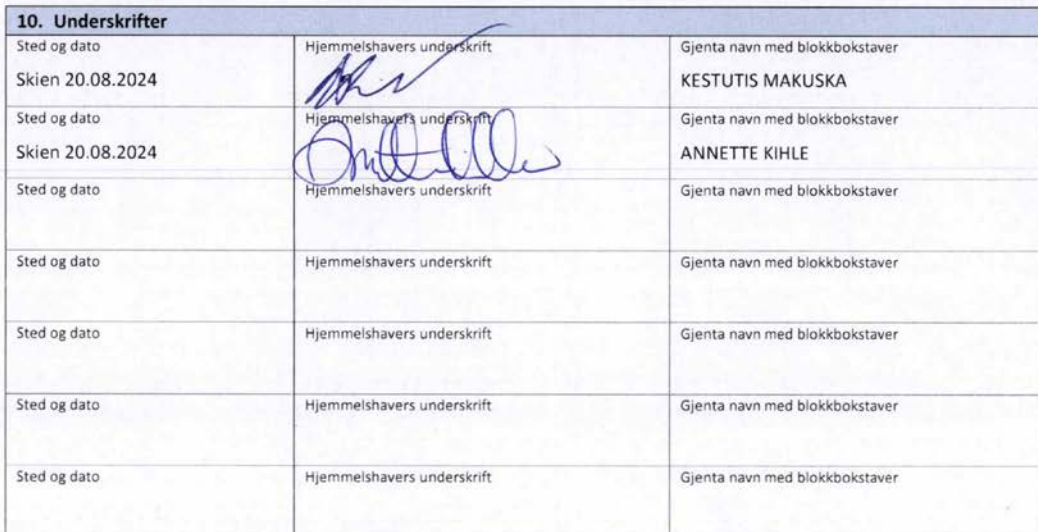 10. Underskrifter
Sted og dato Hjemmelshavers underskrift Gjenta navn med blokkbokstaver
Skien 20.08.2024 KESTUTIS MAKUSKA
Sted og dato Hjemmelshavers underskrift Gjenta navn med blokkbokstaver
Skien 20.08.2024 ANNETTE KIHLE
Sted og dato Hjemmelshavers underskrift Gjenta navn med blokkbokstaver
Sted og dato Hjemmelshavers underskrift Gjenta navn med blokkbokstaver
Sted og dato Hjemmelshavers underskrift Gjenta navn med blokkbokstaver
Sted og dato Hjemmelshavers underskrift Gjenta navn med blokkbokstaver
Sted og dato Hjemmelshavers underskrift Gjenta navn med blokkbokstaver